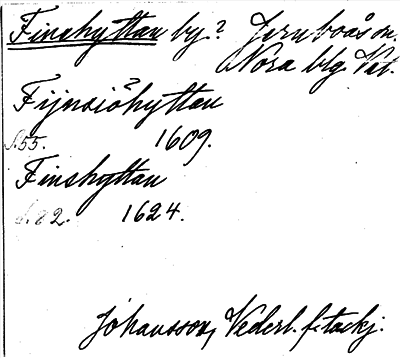 Finshyttan by? Jernboås sn.
Nora blg. Vstm.
Fijnsiöhyttan
?
S. 55. 1609.
Finshyttan
S. 82. 1624.
Johansson, Vederl. f. tackj.